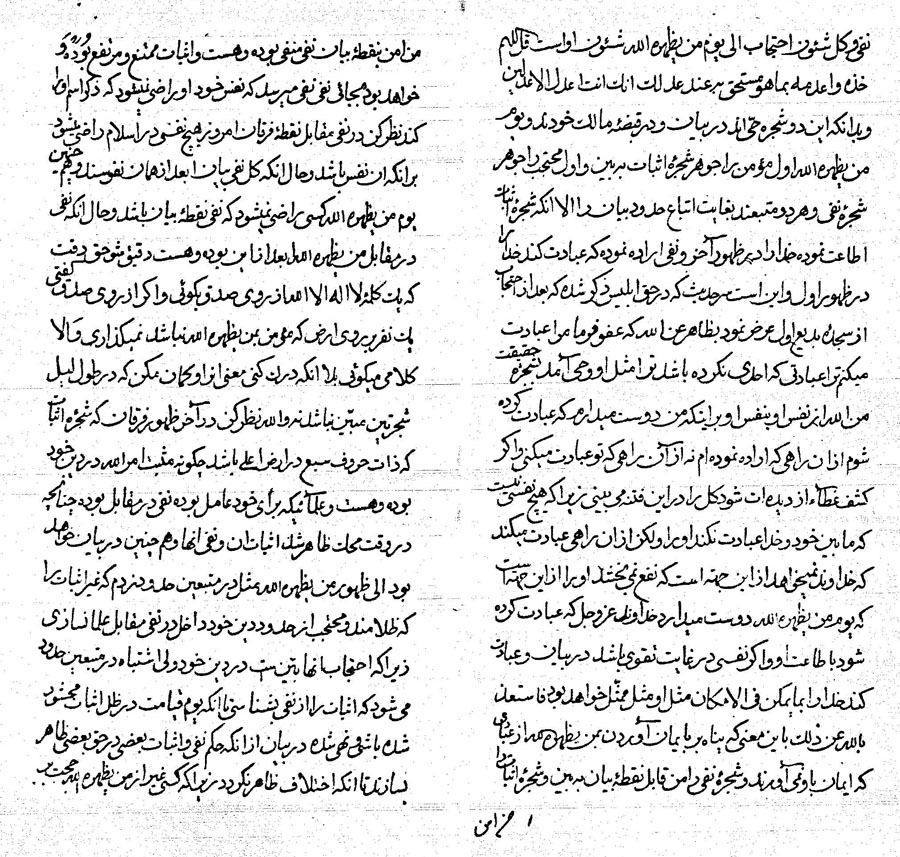 نفی و کل شئون احتجاب الی یوم من یظهره الله شئون او است قل اللهم
خذه واعدمه بما هو مستحق به عند عدلك انك انت اعدل الاعدلین
وبدانکه این دو شجره حی اند در بیان و در قبضهٔ مالك خودند و یوم
من یظهره الله اول مؤمن را جوهر شجرهٔ اثبات ببین و اول محتجب را جوهر
شجرهٔ نفی و هر دو متبعند بغایت اتباع حدود بیان را الا انکه شجرهٔ اثبات
اطاعت نموده خدا را در ظهور آخر و نفی اراده نموده که عبادت کند خدا را
در ظهور اول و این است سر حدیث که در حق ابلیس ذکر شده که بعد از احتجاب
از سجدهٔ بدیع اول عرض نمود بظاهر عن الله که عفو فرما مرا عبادت
میکنم ترا عبادتی که احدی نکرده باشد ترا مثل او وحی آمد شجرهٔ حقیقت
من الله از نفس او بنفس او بر اینکه من دوست میدارم که عبادت کرده
شوم از ان راهی که اراده نموده ام نه از آن راهی که تو عبادت میکنی و اگر
کشف غطاء از دیده ات شود کل را در این فتنه می بینی زیرا که هیچ نفسی نیست
که ما بین خود و خدا عبادت نکند او را ولکن از ان راهی عبادت میکند
که خداوند نمیخواهد از این جهة است که نفع نمی بخشد او را از این جهة است
که یوم من یظهره الله دوست میدارد خداوند عز و جل که عبادت کرده
شود باطاعت او و اگر نفسی در غایت تقوی باشد در بیان و عبادت
کند خدا را بما یمکن فی الامکان مثل او مثل ممثل خواهد بود فاستعذ
بالله عن ذلك باین معنی که پناه بر بایمان آوردن بمن یظهره الله از عبادی
که ایمان باو نمی آورند و شجرهٔ نفی را من قابل نقطهٔ بیان ببین و شجرهٔ اثبات را
من امن بنقطهٔ بیان نفی منفی بوده و هست و اثبات ممتنع و مرتفع بوده و
خواهد بود مجاری نفی نفی میرسد که نفس خود او راضی نمیشود که ذکر اسم او را
کند نظر کن در نفی مقابل نقطهٔ فرقان امروز هیچ نفسی در اسلام راضی میشود
برانکه ان نفس باشد و حال انکه کل نفی بیان ابعد از همان نفوسند و هم چنین
یوم من یظهره الله کسی راضی نمیشود که نفی نقطهٔ بیان باشد و حال انکه نفی
در مقابل من یظهره الله ابعد از این بوده و هست دقیق شو حق دقت
که یك کلمهٔ لا اله الا الله از روی صدق بگوئی و اگر از روی صدق گفتی
یك نفر بر روی ارض که مؤمن بمن یظهره الله نباشد نمیگذاری و الا
کلامی میگوئی بلا انکه درك کنی معنی از او گمان مکن که در طول لیل
شجرتین مبین نباشد نه والله نظر کن در آخر ظهور فرقان که شجرهٔ اثبات
که ذات حروف سبع در ارض اعلی باشد چگونه مثبت امر الله در دین خود
بوده و هست و علمائیکه برأی خود عامل بوده نفی در مقابل بوده چنانچه
در وقت محك ظاهر شد اثبات ان و نفی انها و هم چنین در بیان خواهد
بود الی ظهور من یظهره الله بمثل در متبعین حدود نزدم که غیر اثبات را
که ظلامند و محتجب از حدود دین خود داخل در نفی مقابل علما نسازی
زیرا که احتجاب انها بین است در دین خود ولی اشتباه در متبعین حدود
می شود که اثبات را از نفی بشناسی تا انکه یوم قیامت در ظل اثبات محشور
شده باشی و نهی شده در بیان از انکه حکم نفی و اثبات بعضی در حق بعضی ظاهر
بسازند تا انکه اختلاف ظاهر نگردد زیرا که کسی غیر از من یظهره الله محجت بر